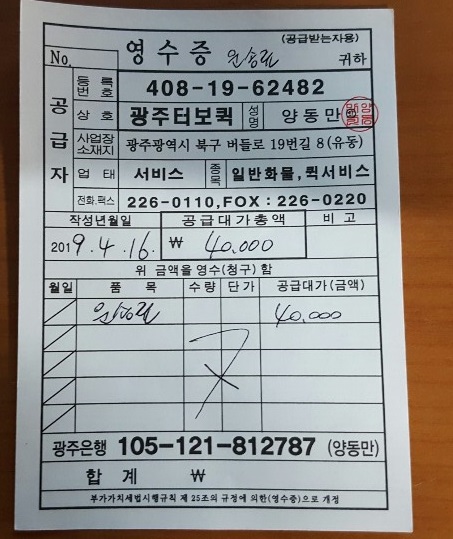 (공급받는자용)
No. 영수증 운송료 귀하
공급자
등록번호 408-19-62482
상호 광주터보퀵 성명 양동만
사업장소재지 광주광역시 북구 버들로 19번길 8(유동)
업태 서비스 종목 일반화물,퀵서비스
전화.팩스 226-0110,FOX : 226-0220
작성년월일 공급대가총액 비고
2019.4.16. ₩ 40.000
위 금액을 영수(청구)함
월일 품목 수량 단가 공급대가(금액)
40.000
광주은행 105-121-812787 (양동만)
합계 ₩
부가가치세법시행규칙 제 25조의 규정에 의한(영수증)으로 개정